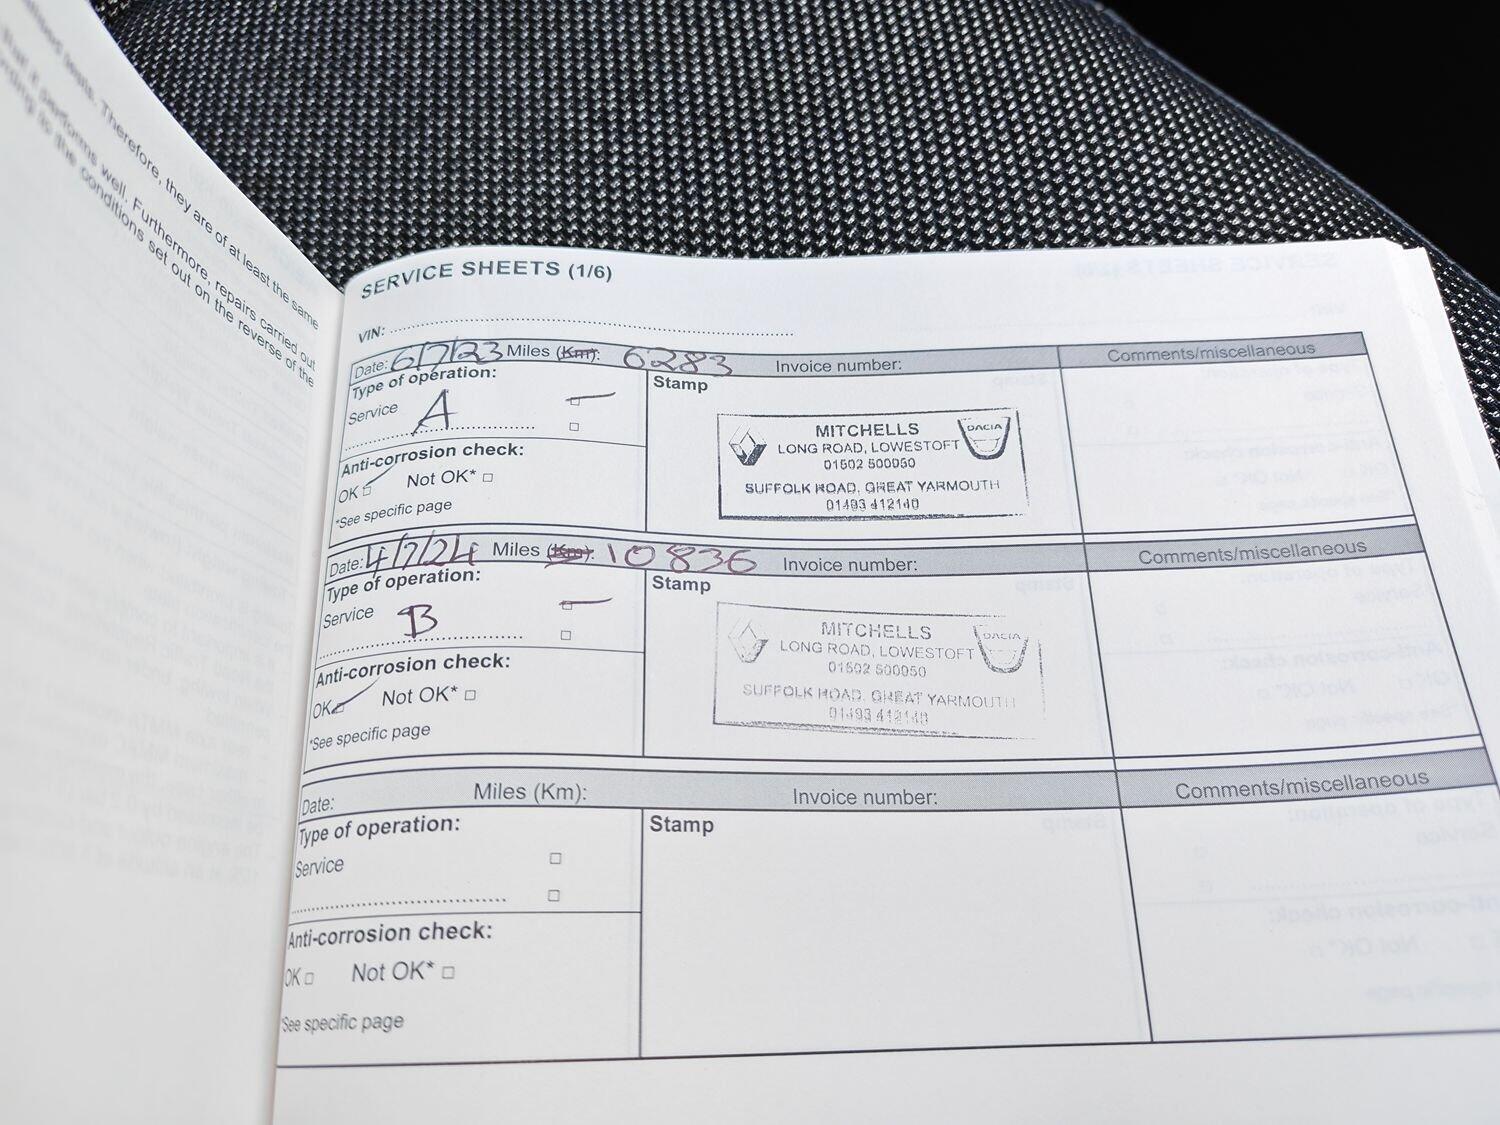 . Therefore, they are of at least the same
that it performs well. Furthermore, repairs carried out
to the conditions set out on the reverse of the
SERVICE SHEETS (1/6)
VIN:
Date: 6/7/23 Miles (Km): 6283 Invoice number: Comments/miscellaneous
Type of operation: Stamp
Service A
MITCHELLS
LONG ROAD, LOWESTOFT DACIA
01502 500050
SUFFOLK ROAD, GREAT YARMOUTH
01493 412140
Anti-corrosion check:
OK Not OK*
*See specific page
Date: 4/7/24 Miles (Km): 10836 Invoice number: Comments/miscellaneous
Type of operation: Stamp
Service B
MITCHELLS
LONG ROAD, LOWESTOFT DACIA
01502 500050
SUFFOLK ROAD, GREAT YARMOUTH
01493 412140
Anti-corrosion check:
OK Not OK*
*See specific page
Date: Miles (Km): Invoice number: Comments/miscellaneous
Type of operation: Stamp
Service
Anti-corrosion check:
OK Not OK*
*See specific page